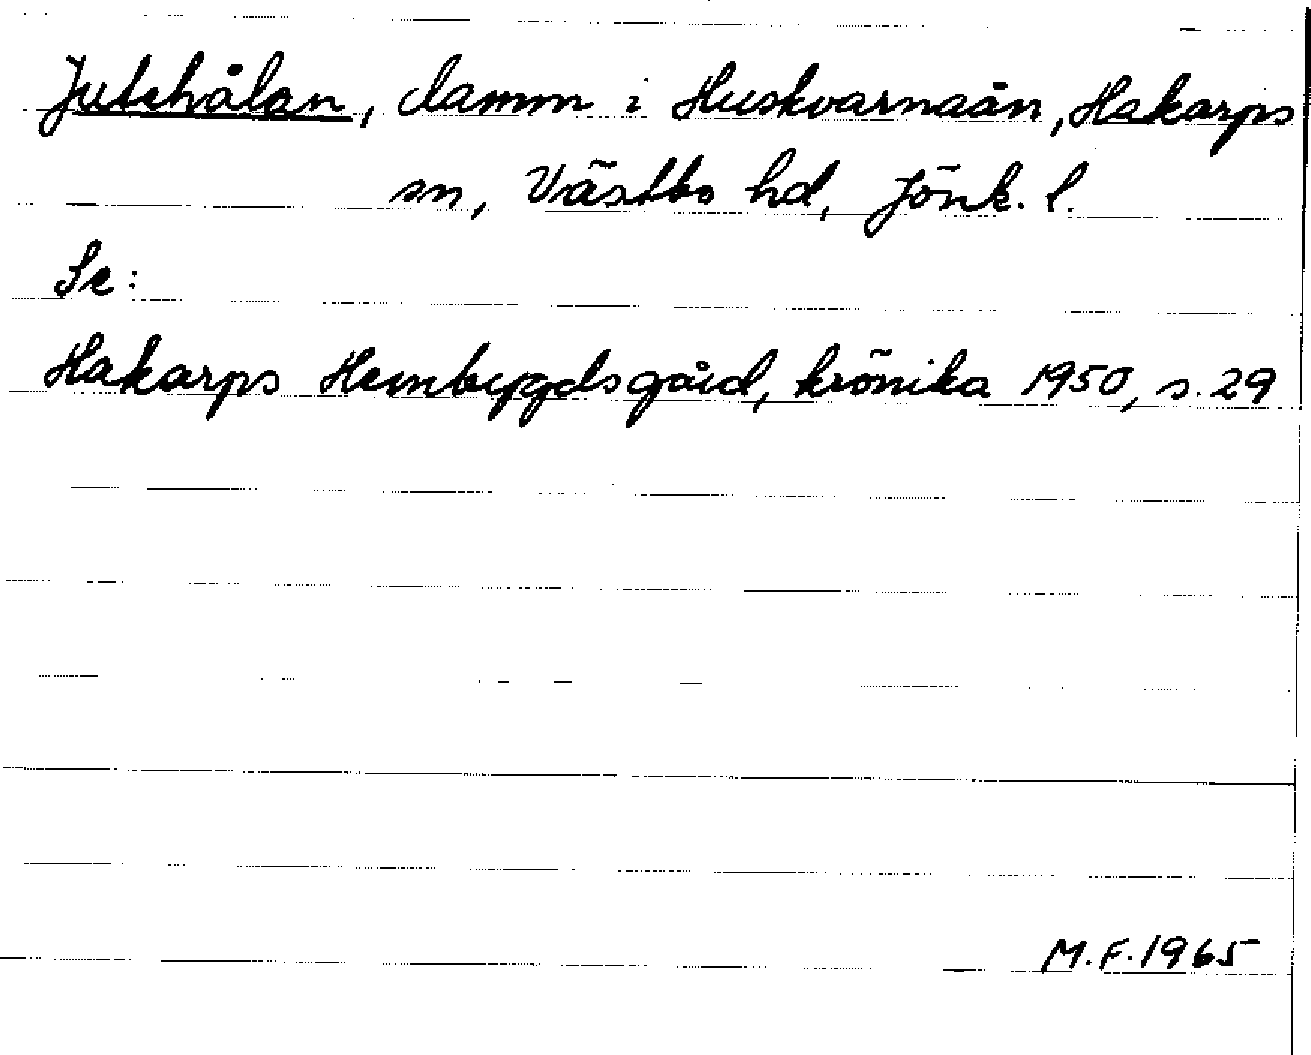 Jutehålan, damm i Huskvarnaån, Hakarps
sn, Västbo hd, Jönk. l.
Se:
Hakarps Hembygdsgård, krönika 1950, s. 29
M.F. 1965